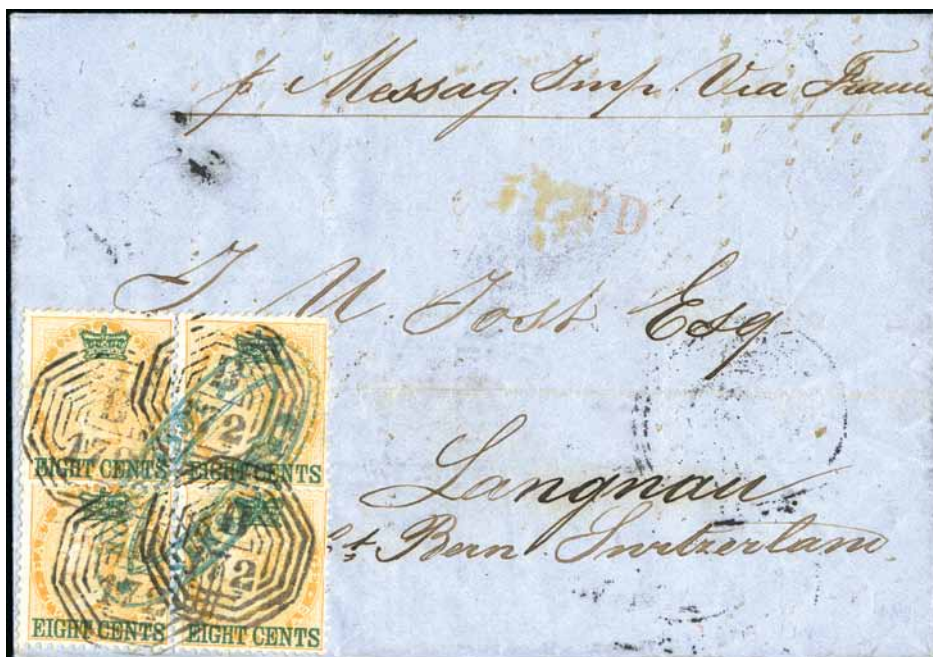 p Messag. Imp. Via France
PD
J. U. Jost Esq
Langnau
Ct Bern Switzerland
EIGHT CENTS EIGHT CENTS
EIGHT CENTS EIGHT CENTS